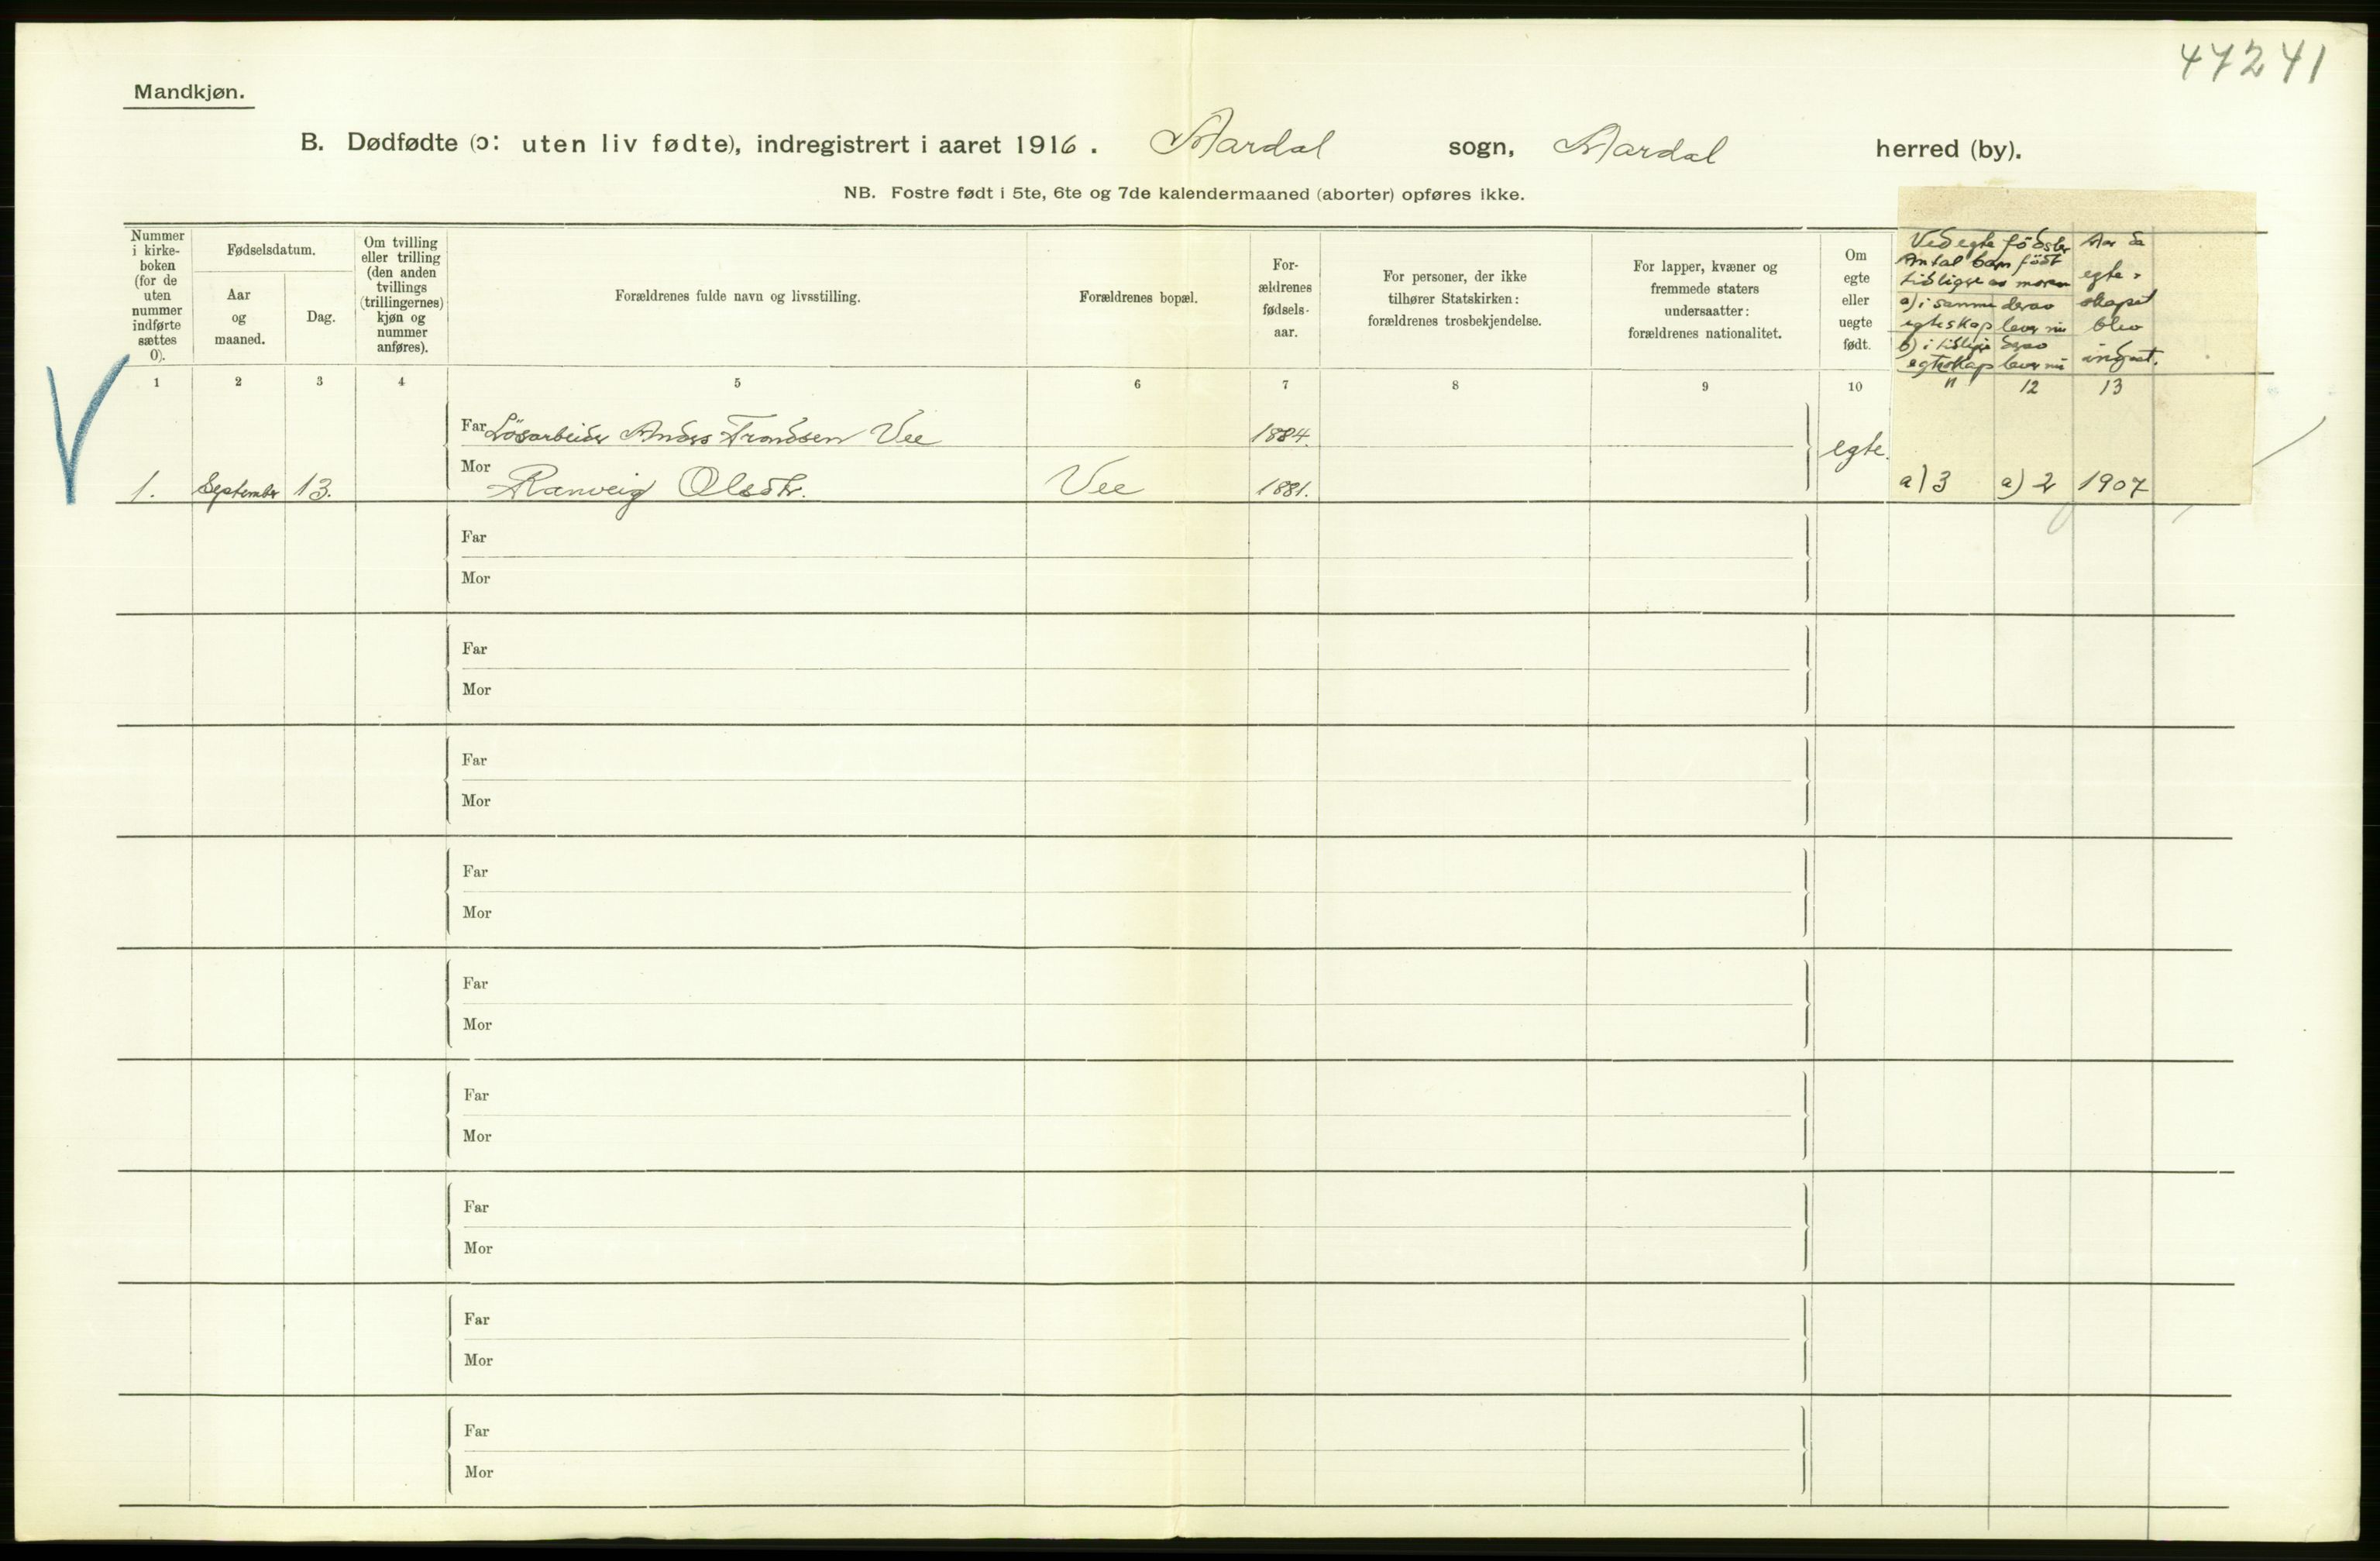 47241
Mandkjøn.
B. Dødfødte (ɔ: uten liv fødte), indregistrert i aaret 1916. Aardal sogn, Aardal herred (by).
NB. Fostre født i 5te, 6te og 7de kalendermaaned (aborter) opføres ikke.
Nummer
i kirke-
boken
(for de
uten
nummer
indførte
sættes
0).
Fødselsdatum.
Aar
og
maaned.
Dag.
Om tvilling
eller trilling
(den anden
tvillings
(trillingernes)
kjøn og
nummer
anføres).
Forældrenes fulde navn og livsstilling.
Forældrenes bopæl.
For-
ældrenes
fødsels-
aar.
For personer, der ikke
tilhører Statskirken:
forældrenes trosbekjendelse.
For lapper, kvæner og
fremmede staters
undersaatter:
forældrenes nationalitet.
Om
egte
eller
uegte
født.
Ved egte födsler
Antal barn födt
tidligere av moren
a) i samme derav
egteskap lever nu
b) i tidligere derav
egteskap lever nu
Aar da
egte-
skapet
blev
indgaat.
1 2 3 4 5 6 7 8 9 10 11 12 13
Far Lösarbeider Anders Trondsen Vee 1884.
egte.
1. September 13. Mor Ranveig Olsdtr. Vee 1881. a) 3 a) 2 1907
Far
Mor
Far
Mor
Far
Mor
Far
Mor
Far
Mor
Far
Mor
Far
Mor
Far
Mor
Far
Mor